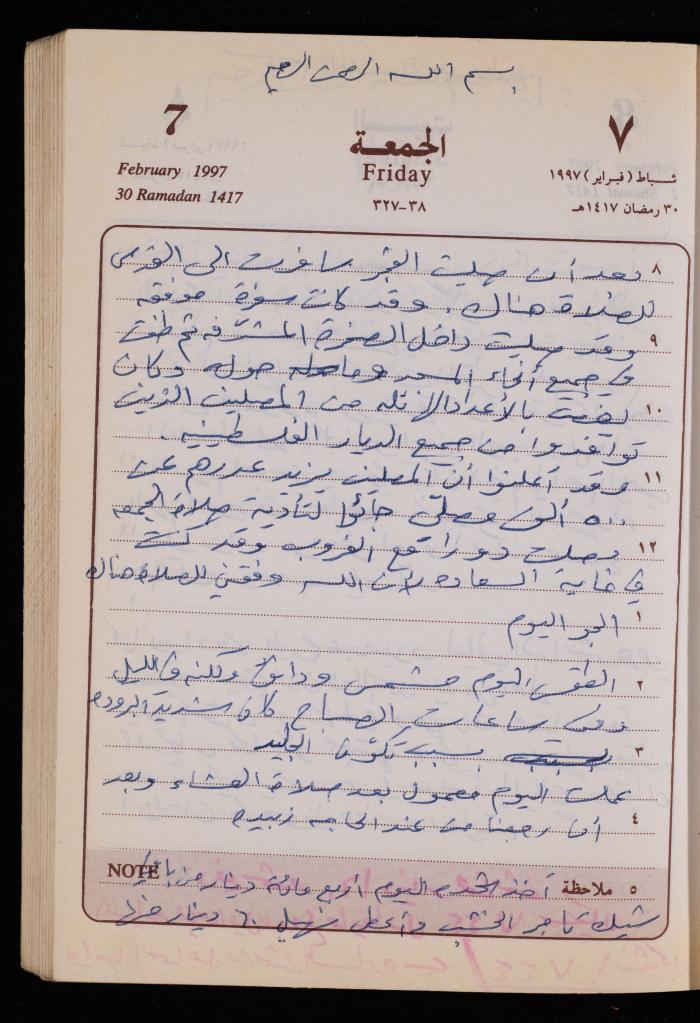 بسم الله الرحمن الرحيم
7
٧
الجمعة
February 1997
Friday
شباط (فبراير) ١٩٩٧
30 Ramadan 1417
٣٨-٣٢٧
٣٠ رمضان ١٤١٧هـ
٨ بعد أن صليت الفجر سافرت الى القدس
للصلاة هناك. وقد كانت سفرة موفقه
٩ وقد صليت داخل الصخرة المشرفه ثم طفت
في جميع أنحاء المسجد وما حوله وكان
١٠ بالأعداد الهائله من المصلين الذين
توافدوا من جميع الديار الفلسطينيه.
١١ وقد أعلنوا أن المصلين يزيد عددهم عن
٥٠٠ ألف مصلي جاؤا لتأدية صلاة الجمعه
١٢ وصلت دورا مع الغروب وقد كنت
في غاية السعاده لأن الله وفقني للصلاة هناك
١ الجو اليوم
٢ الطقس اليوم مشمس ودافئ ولكنه في الليل
وفي ساعات الصباح كان شديد البروده
٣ بسبب تكوّن الجليد
عملت اليوم معمول بعد صلاة العشاء وبعد
٤ أن رجعنا من عند الحاجه زبيده
NOTE
٥ ملاحظة أخذ اليوم أربع مائة دينار من
شيك تاجر الخشب وأعطى سهيل ٦٠ دينار